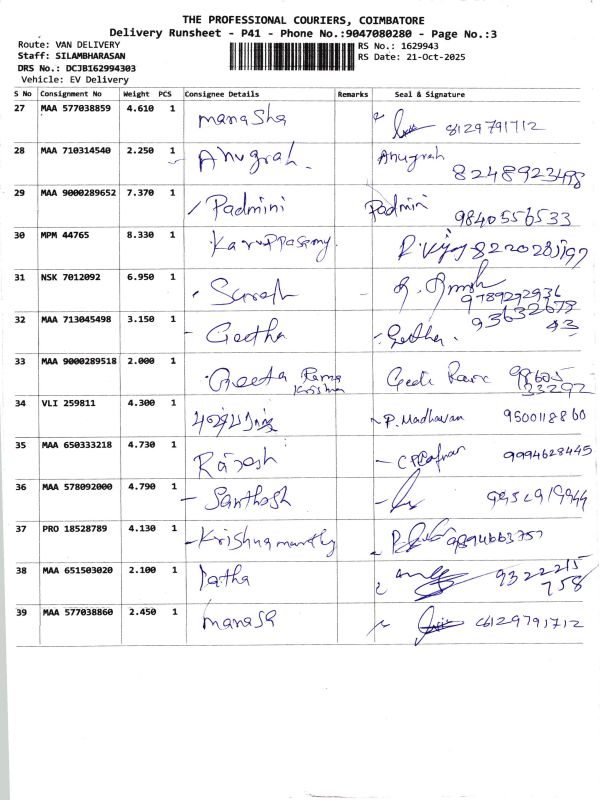 THE PROFESSIONAL COURIERS, COIMBATORE
Delivery Runsheet - P41 - Phone No.:9047080280 - Page No.:3
Route: VAN DELIVERY
RS No.: 1629943
Staff: SILAMBHARASAN
RS Date: 21-Oct-2025
DRS No.: DCJB162994303
Vehicle: EV Delivery
S No Consignment No Weight PCS Consignee Details Remarks Seal & Signature
27 MAA 577038859 4.610 1 manasha 8129791712
28 MAA 710314540 2.250 1 Anugrah. Anugrah
8248923498
29 MAA 9000289652 7.370 1 Padmini Padmini
9840556533
30 MPM 44765 8.330 1 Karuppasamy.
31 NSK 7012092 6.950 1 Suresh
9789292936
32 MAA 713045498 3.150 1 Geetha Geetha. 93632678
43
33 MAA 9000289518 2.000 1 Geeta Rama
Krishna
98605
33292
34 VLI 259811 4.300 1 P. Madhavan 9500118860
35 MAA 650333218 4.730 1 Rajesh 9994628445
36 MAA 578092000 4.790 1 Santhosh
37 PRO 18528789 4.130 1 Krishnamoorthy 9894663757
38 MAA 651503020 2.100 1 Latha 9322215
758
39 MAA 577038860 2.450 1 manasa 8129791712